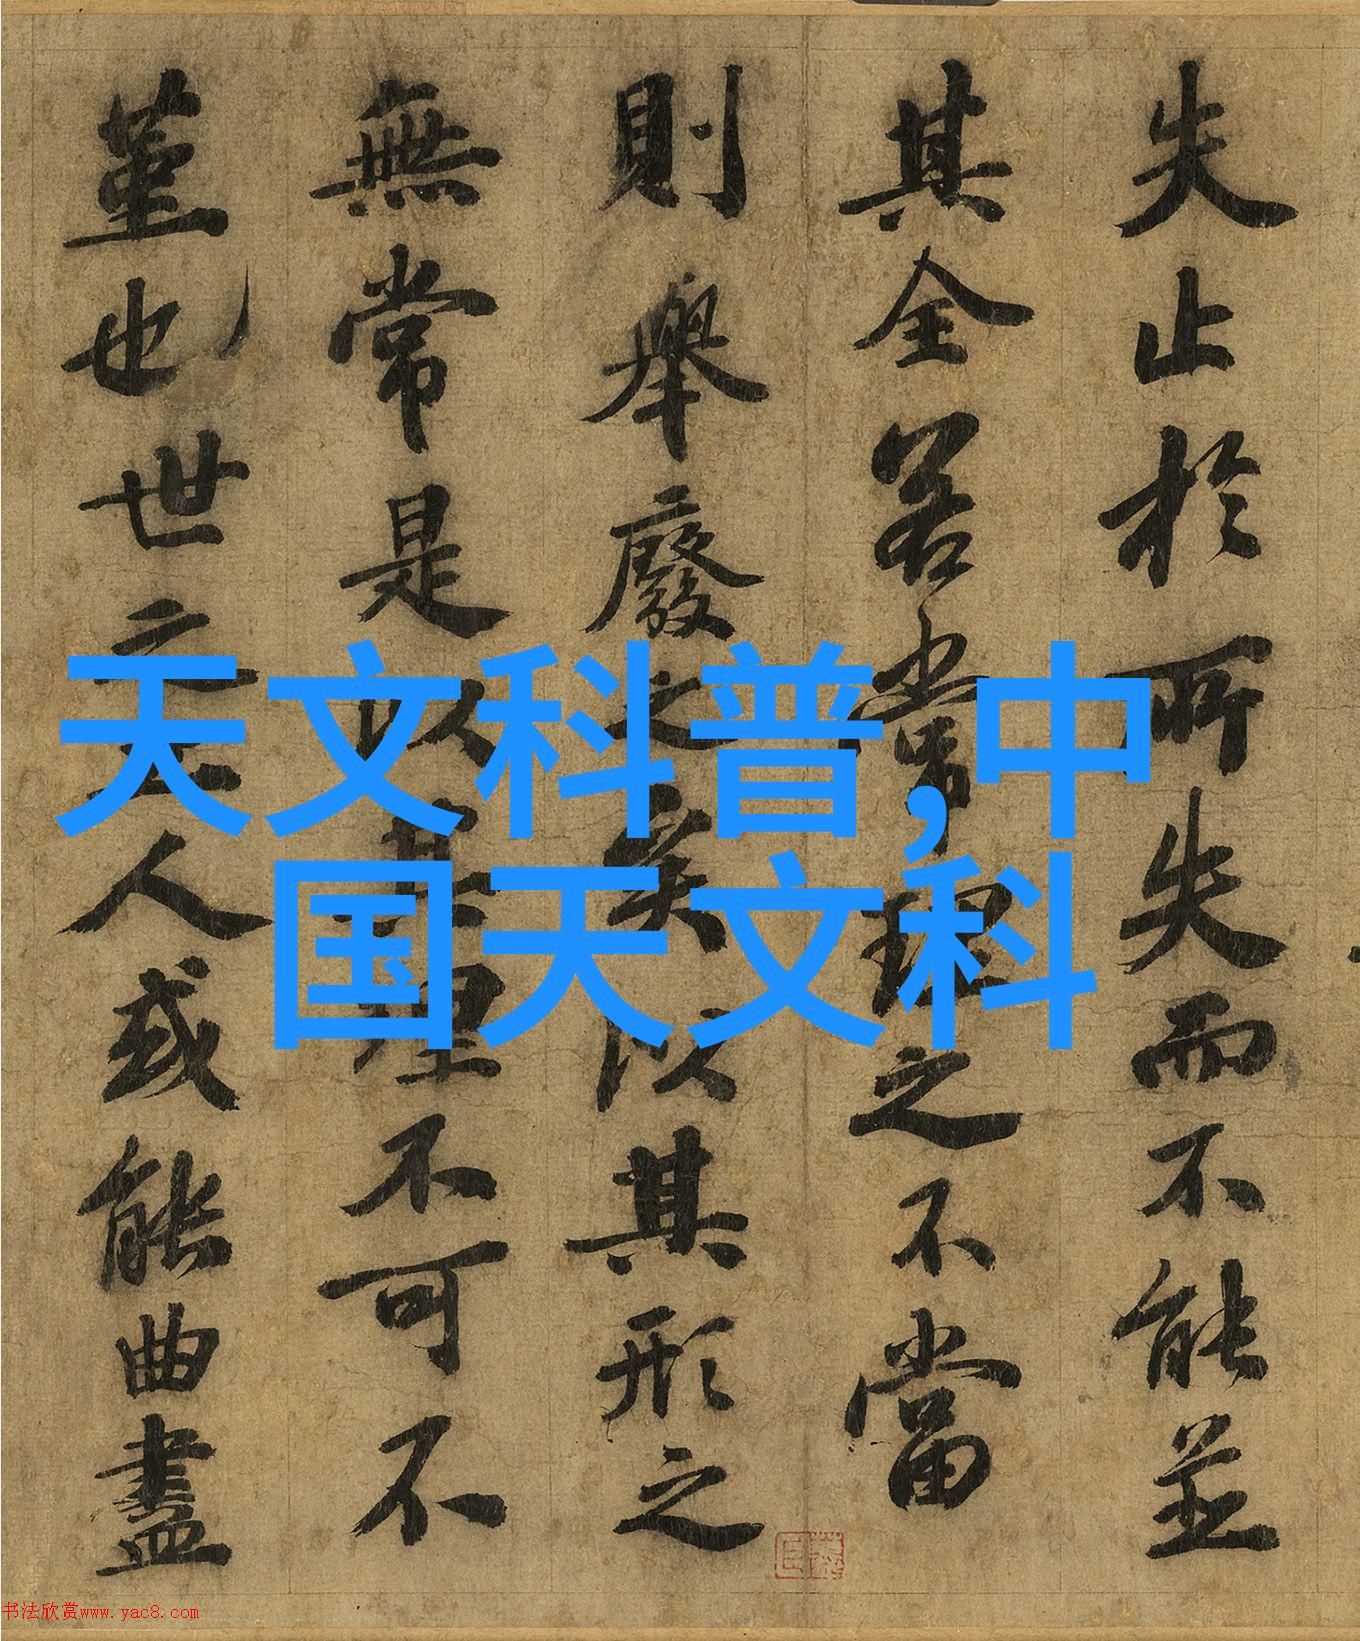 失止於所失而不能並
其全若常理之不當
則舉廢之矣以其形之
無常是以其理不可不
堇也世之工人或能曲盡
天文科普,中
国天文科
书法欣赏www.yac8.com